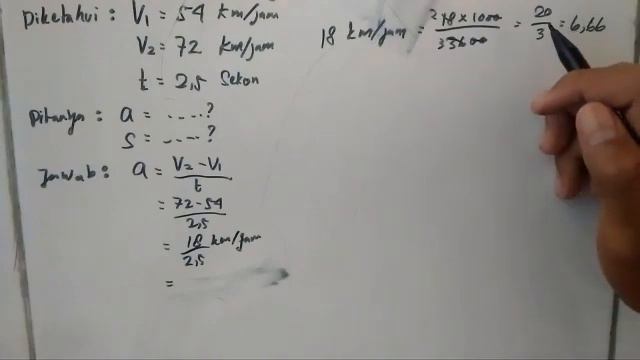 Diketahui : V1 = 54 km/jam
V2 = 72 km/jam
t = 2,5 Sekon
Ditanya : a = .....?
S = .....?
Jawab : a = V2 - V1 / t
= 72 - 54 / 2,5
= 18 km/jam / 2,5
=
18 km/jam = 2 18 x 1000 / 3 3600 = 20 / 3 = 6,66